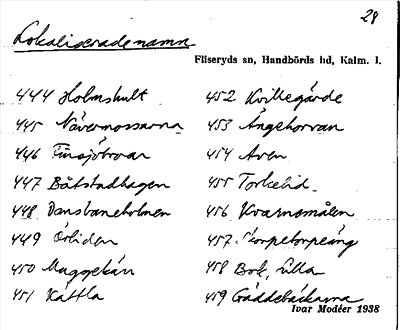 28
Lokaliserade namn
Fliseryds sn, Handbörds hd, Kalm. l.
444 Holmhult
445 Nävermossarna
446 Finsjöbrovar
447 Båtstadhagen
448 Dansbaneholmen
449 Örliden
450 Muggekärr
451 Kättla
452 Kvillegärde
453 Ängehorvan
454 Aven
455 Torkelid
456 Kvarnsmålen
457 Storpetorpeäng
458 Bok, Lilla
459 Gäddebäckarna
Ivar Modéer 1938